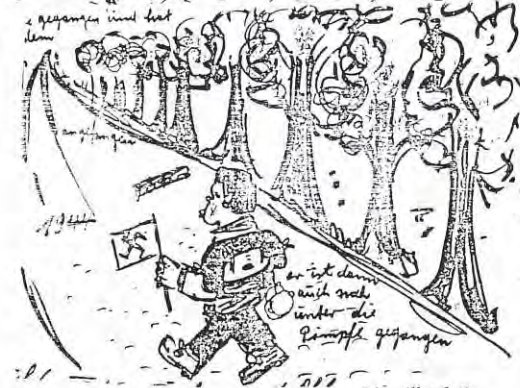 gegangen und hat
dem
angefangen
1944
er ist dann
auch noch
unter die
Pimpfe gegangen